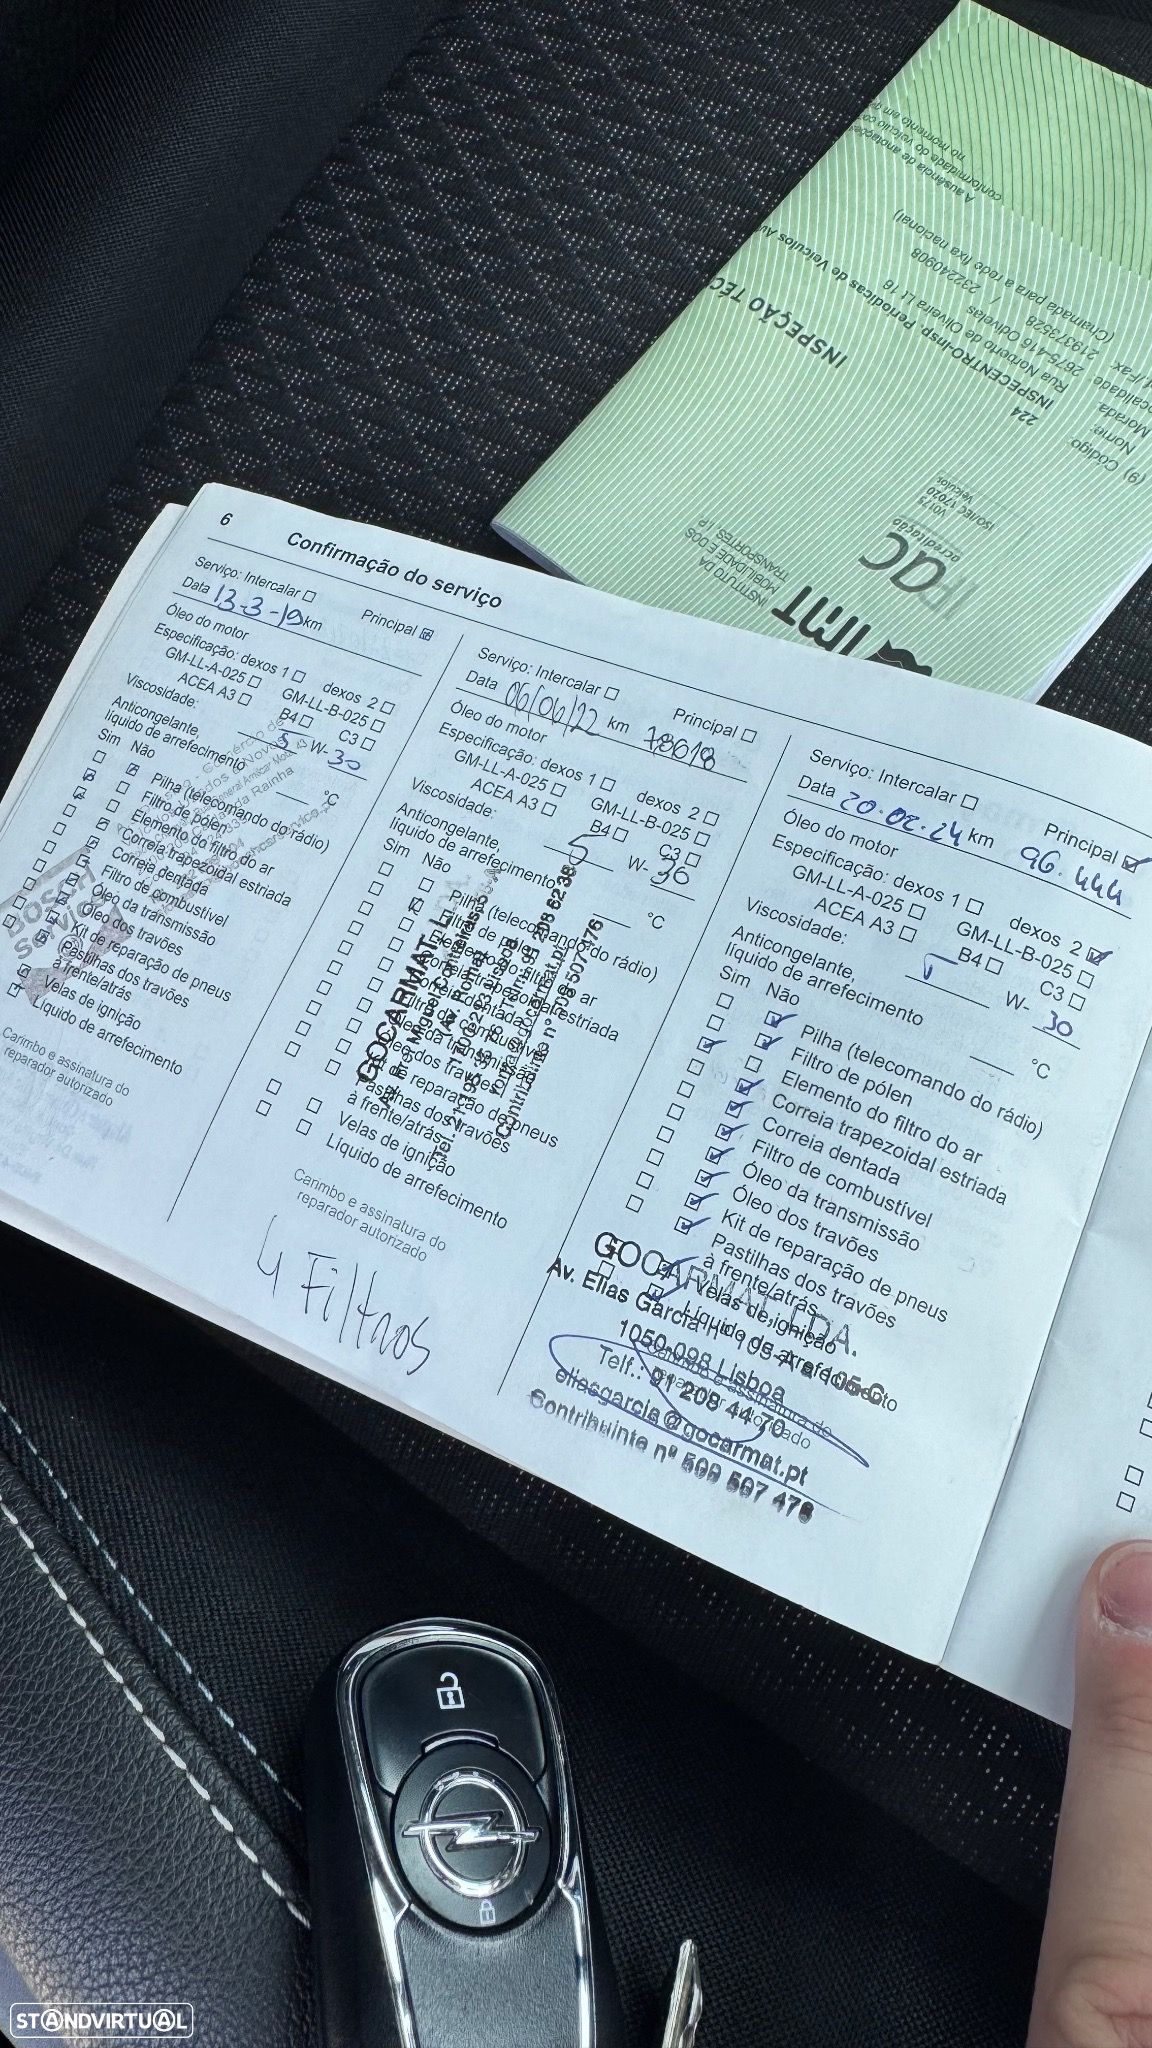 6
Confirmação do serviço
Serviço: Intercalar
Principal
Data 13-3-19 km
Óleo do motor
Especificação: dexos 1
dexos 2
GM-LL-A-025
GM-LL-B-025
ACEA A3
B4
C3
Viscosidade:
5 W- 30
Anticongelante,
líquido de arrefecimento
°C
Sim Não
Pilha (telecomando do rádio)
Filtro de pólen
Elemento do filtro do ar
Correia trapezoidal estriada
Correia dentada
Filtro de combustível
Óleo da transmissão
Óleo dos travões
Kit de reparação de pneus
Pastilhas dos travões
à frente/atrás
Velas de ignição
Líquido de arrefecimento
Carimbo e assinatura do
reparador autorizado
BOSCH
Service
Serviço: Intercalar
Principal
Data 06/06/22 km 78018
Óleo do motor
Especificação: dexos 1
dexos 2
GM-LL-A-025
GM-LL-B-025
ACEA A3
B4
C3
Viscosidade:
5 W- 30
Anticongelante,
líquido de arrefecimento
°C
Sim Não
Pilha (telecomando do rádio)
Velas de ignição
Líquido de arrefecimento
Carimbo e assinatura do
reparador autorizado
GOCARMAT, L
4 Filtros
Serviço: Intercalar
Principal
Data 20.02.24 km 96.444
Óleo do motor
Especificação: dexos 1
dexos 2
GM-LL-A-025
GM-LL-B-025
ACEA A3
B4
C3
Viscosidade:
5 W- 30
Anticongelante,
líquido de arrefecimento
°C
Sim Não
Pilha (telecomando do rádio)
Filtro de pólen
Elemento do filtro do ar
Correia trapezoidal estriada
Correia dentada
Filtro de combustível
Óleo da transmissão
Óleo dos travões
Kit de reparação de pneus
Pastilhas dos travões
à frente/atrás
Velas de ignição
Líquido de arrefecimento
Carimbo e assinatura do
reparador autorizado
GOCARMAT, LDA.
Av. Elias Garcia nº 105-A e 105-C
1050-098 Lisboa
Telf.: 91 208 44 70
eliasgarcia@gocarmat.pt
Contribuinte nº
IMT
INSTITUTO DA
MOBILIDADE E DOS
TRANSPORTES, I.P
ac
acreditação
ISO/IEC 17020
Veículos
INSPEÇÃO
(9) Código: 224
Nome: INSPECENTRO-Insp. Periodicas de Veiculos
Morada: Rua Norberto de Oliveira Lt 16
2675-416 Odivelas
219373528 / 232240908
(Chamada para a rede fixa nacional)
A ausência de anotações
conformidade do veículo
no momento em
OPEL
STANDVIRTUAL